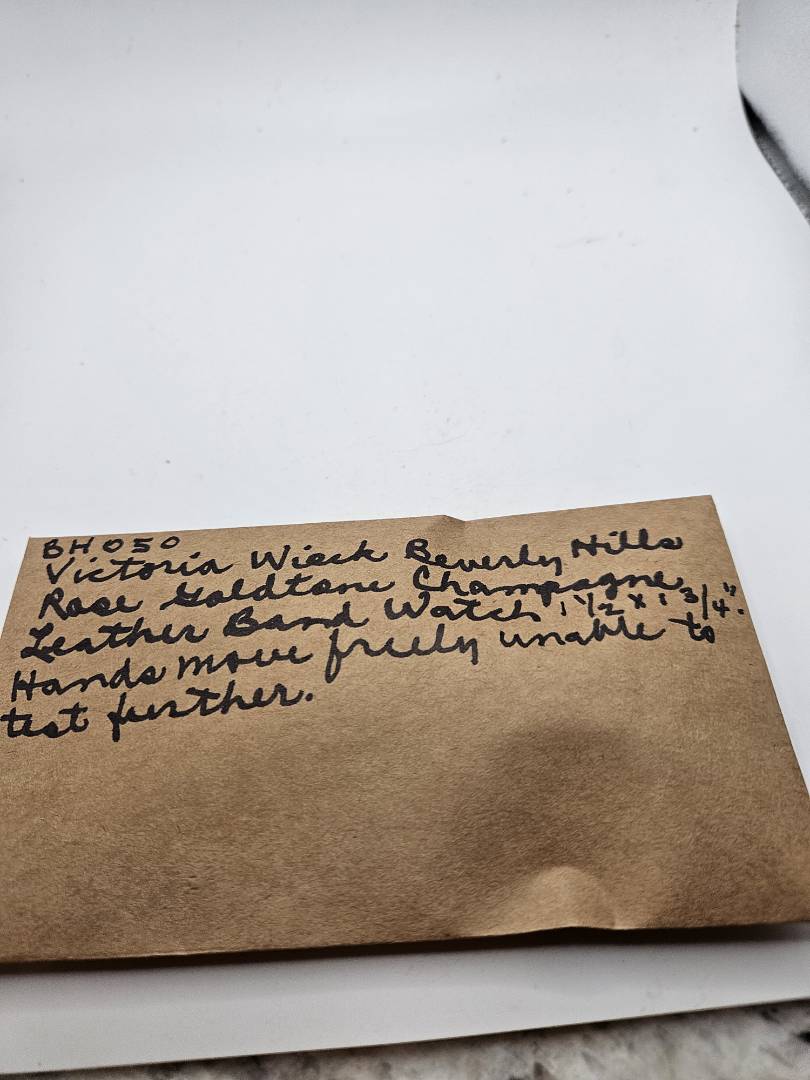 BH050
Victoria Wieck Beverly Hills
Rose Goldtone Champagne
Leather Band Watch 1 1/2 x 1 3/4".
Hands move freely unable to
test further.